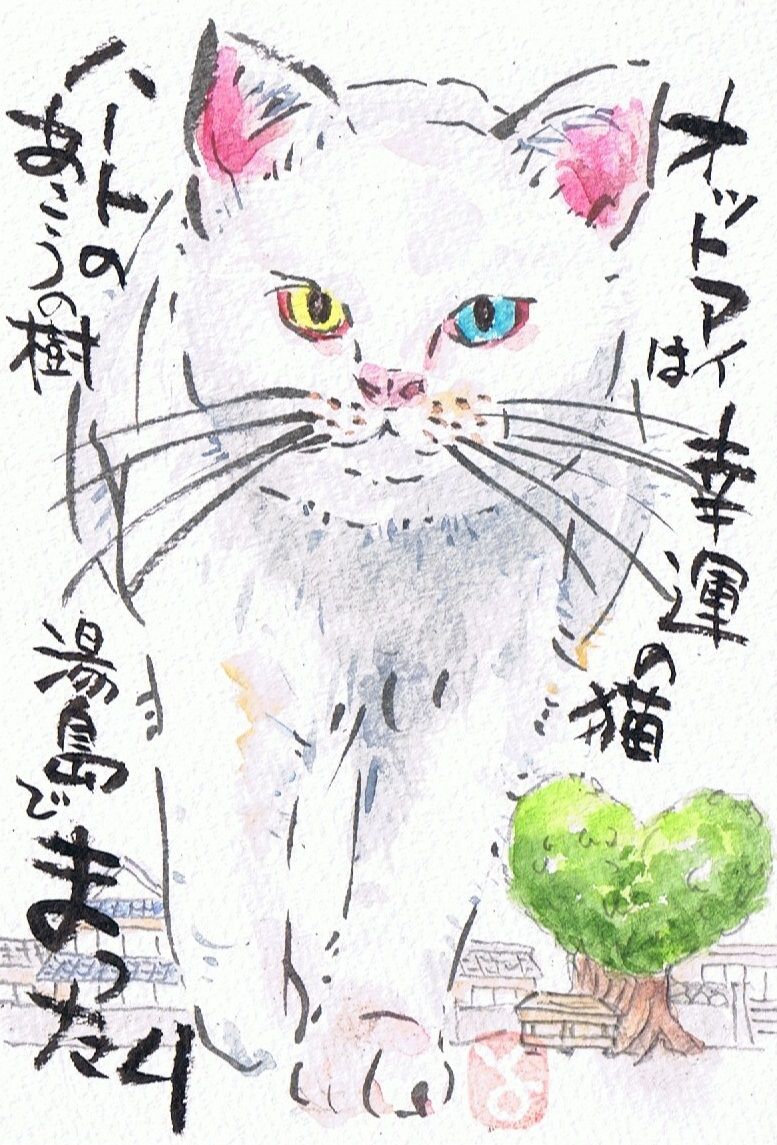 オットアイ
は
幸運
の猫
ハートの
あこうの樹
湯島で
まったり